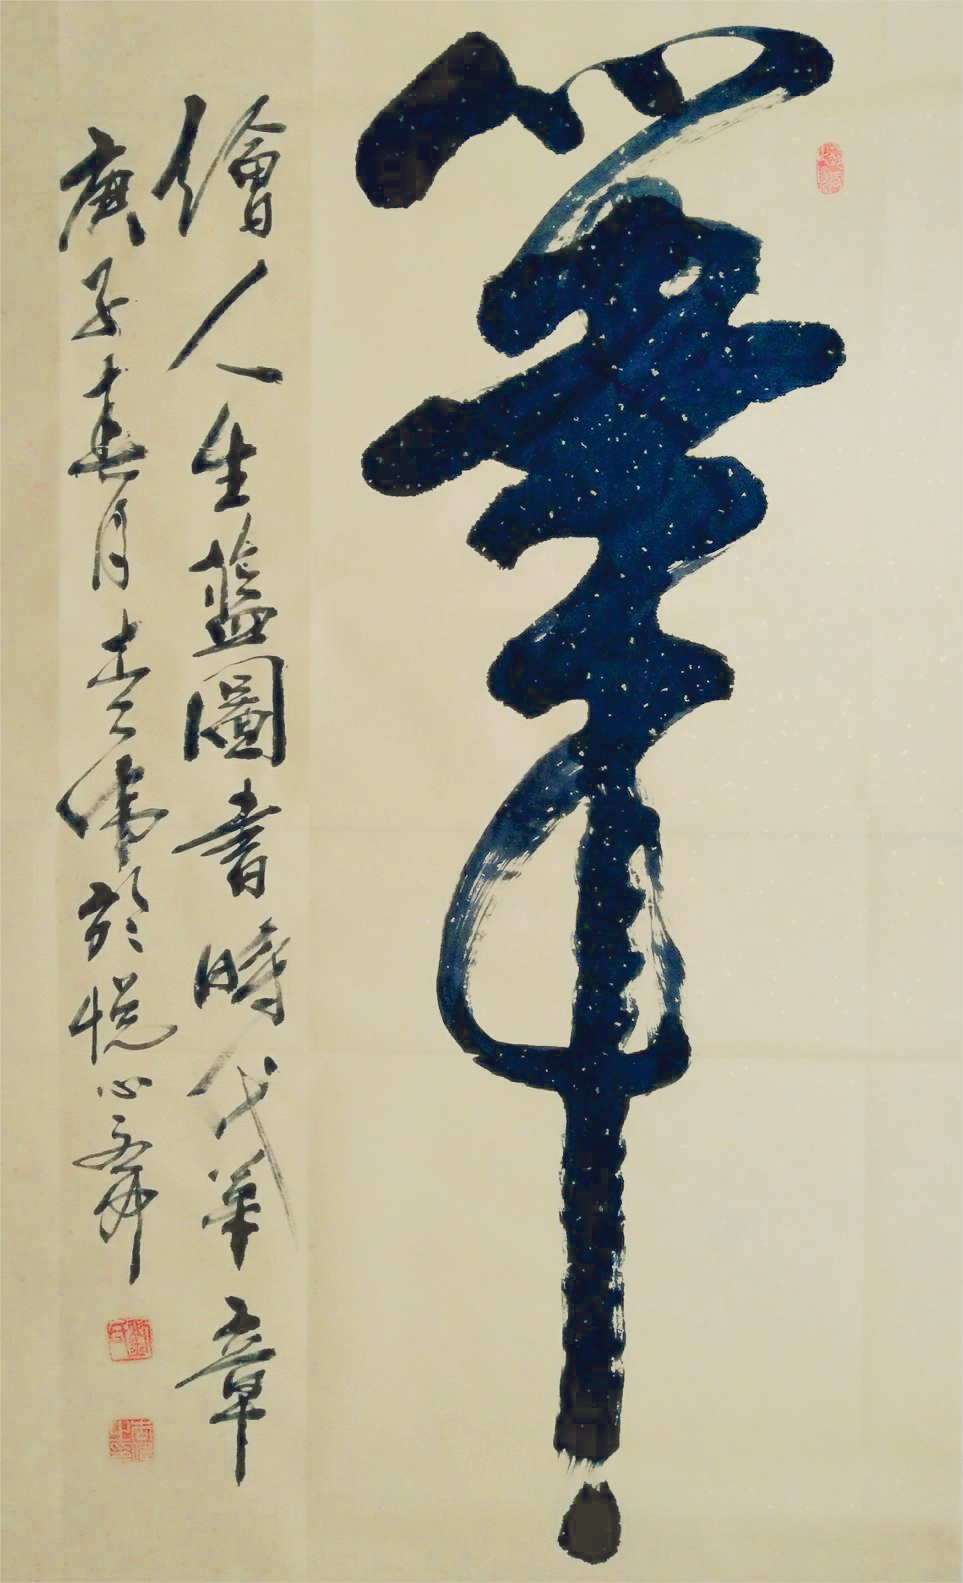 筆
繪人生藍圖書時代華章
庚子春月吉偉於悦心齋